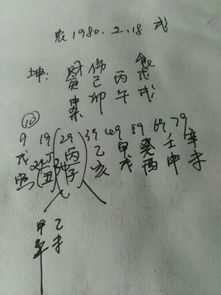 农1980.2.18 戌
坤: 财 伤 食
庚 己 丙 戊
辰 卯 午 戌
9 19 29 39 49 59 69 79
戊 丁 丙 乙 甲 癸 壬 辛
寅 丑 子 亥 戌 酉 申 未
甲 乙
午 未